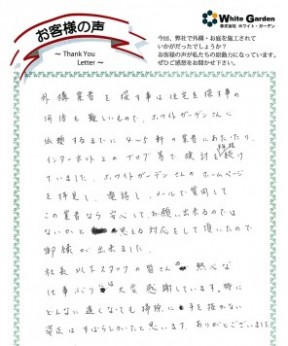 お客様の声
～ Thank You
Letter ～
White Garden
株式会社 ホワイト・ガーデン
今回、弊社で外構・お庭を施工されて
いかがだったでしょうか？
お客様の声が私たちの原動力になっています。
ぜひご感想をお聞かせ下さい。
外構業者を探す事は住宅を探す事の
何倍も難しいもので、ホワイトガーデンさんに
依頼するまでに4～5軒の業者にあたったり、
インターネット上のブログ等で検討を続け
ていました。ホワイトガーデンさんのホームページ
を拝見し、連絡し、メールで質問して
この業者なら安心してお願い出来るのでは
ないかと 思える対応をして頂いたので
御縁が出来ました。
社長以下スタッフの皆さんの熱心な
仕事ぶりは大変感謝しています。特に
どんなに遅くなっても掃除に手を抜かない
姿勢はすばらしかったと思います。ありがとうございました